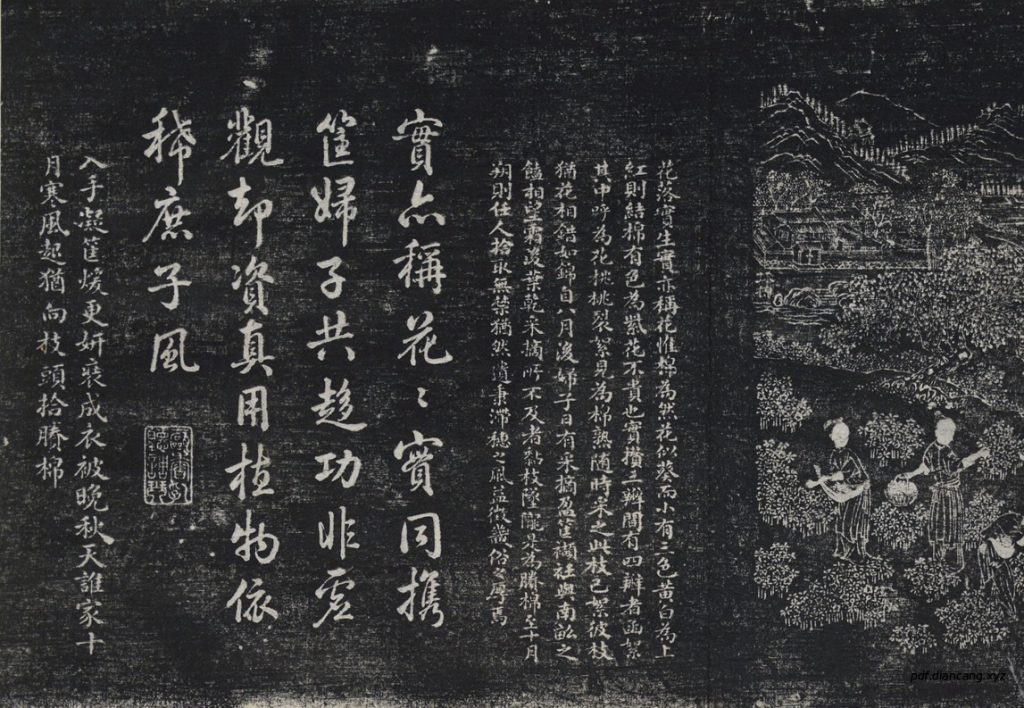 花落實生實亦稱花惟棉為然花似葵而小有三色黃白為上
紅則結棉有色為紫花不貴也實攢三瓣間有四瓣者函絮
其中呼為花桃桃裂絮見為棉熟隨時采之此枝已絮彼枝
猶花相錯如錦自八月後婦子日有采摘盈筐襭袵與南畝之
饁相望霜後葉乾采摘所不及者黏枝墜隴是為賸棉至十月
朔則任人拾取無禁猶然遺秉滯穗之風益徵畿俗之厚焉
實亦稱花〻實同攜
筐婦子共趍功非虛
觀却資真用植物依
稀庶子風
入手凝筐煖更妍裒成衣被晚秋天誰家十
月寒風起猶向枝頭拾賸棉
pdf.diancang.xyz